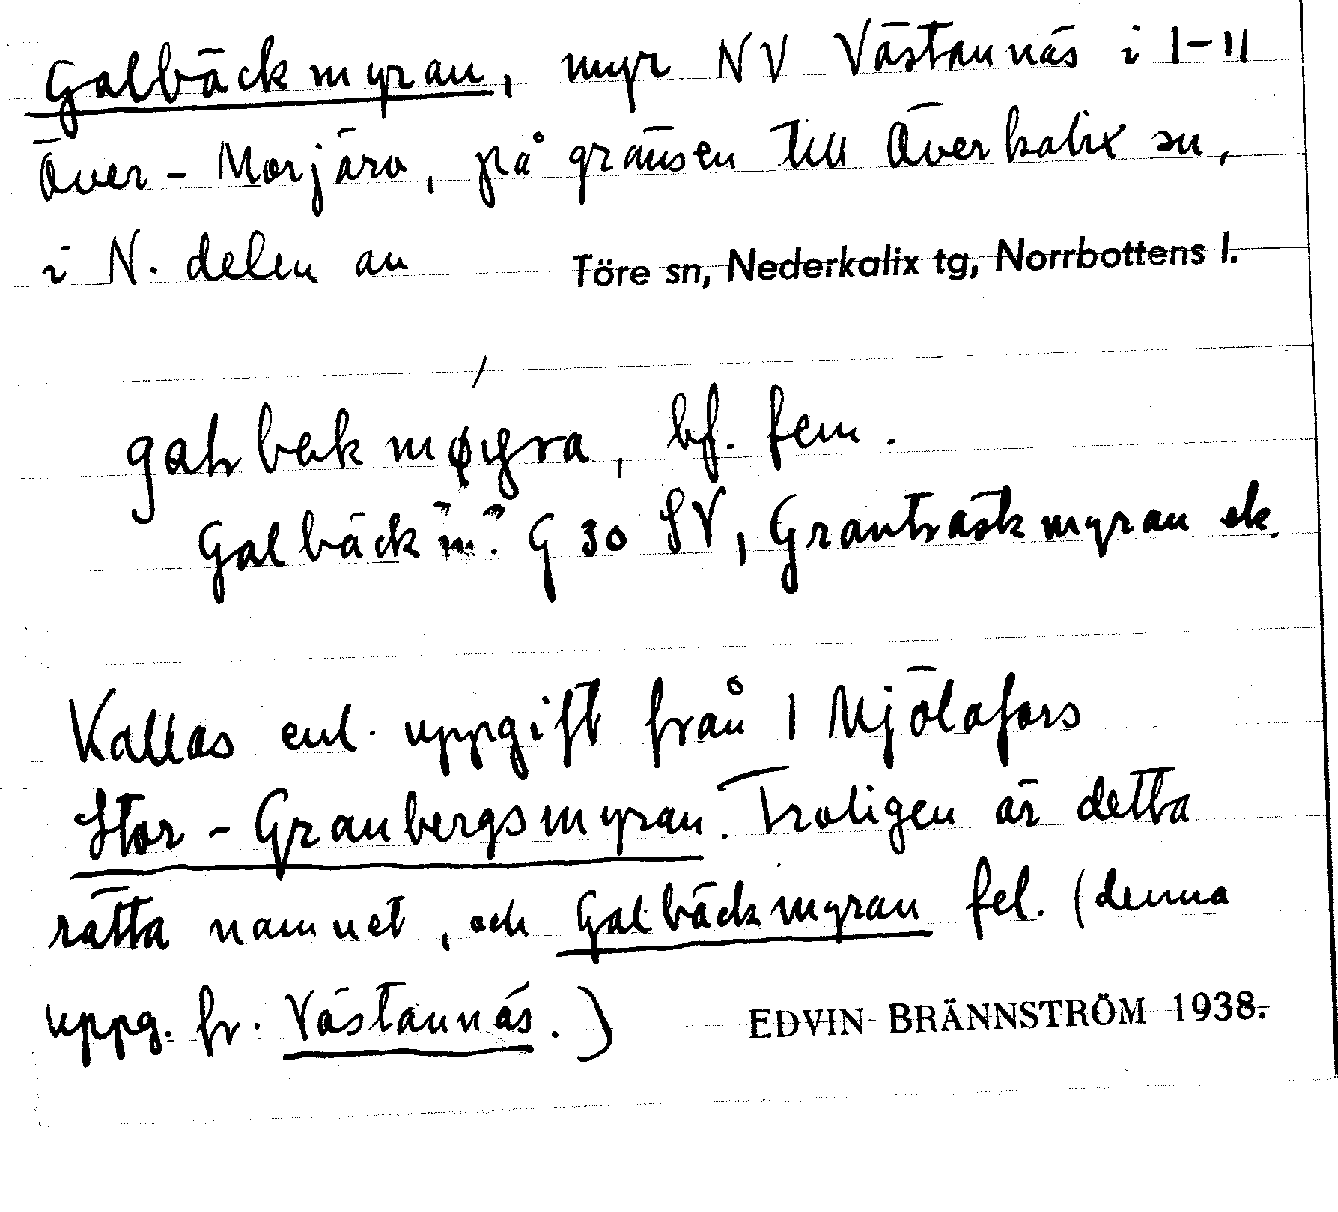 Galbäckmyran, myr NV Västannäs i 1-11
Över-Morjärv, på gränsen till Överkalix sn,
i N. delen av Töre sn, Nederkalix tg, Norrbottens l.
bf. fem.
Galbäck G 30 SV, Granträskmyran ek.
Kallas enl. uppgift från 1 Mjölafors
Stor-Granbergsmyran. Troligen är detta
rätta namnet, och Galbäckmyran fel. (denna
uppg. fr. Västannäs.) EDVIN BRÄNNSTRÖM 1938.